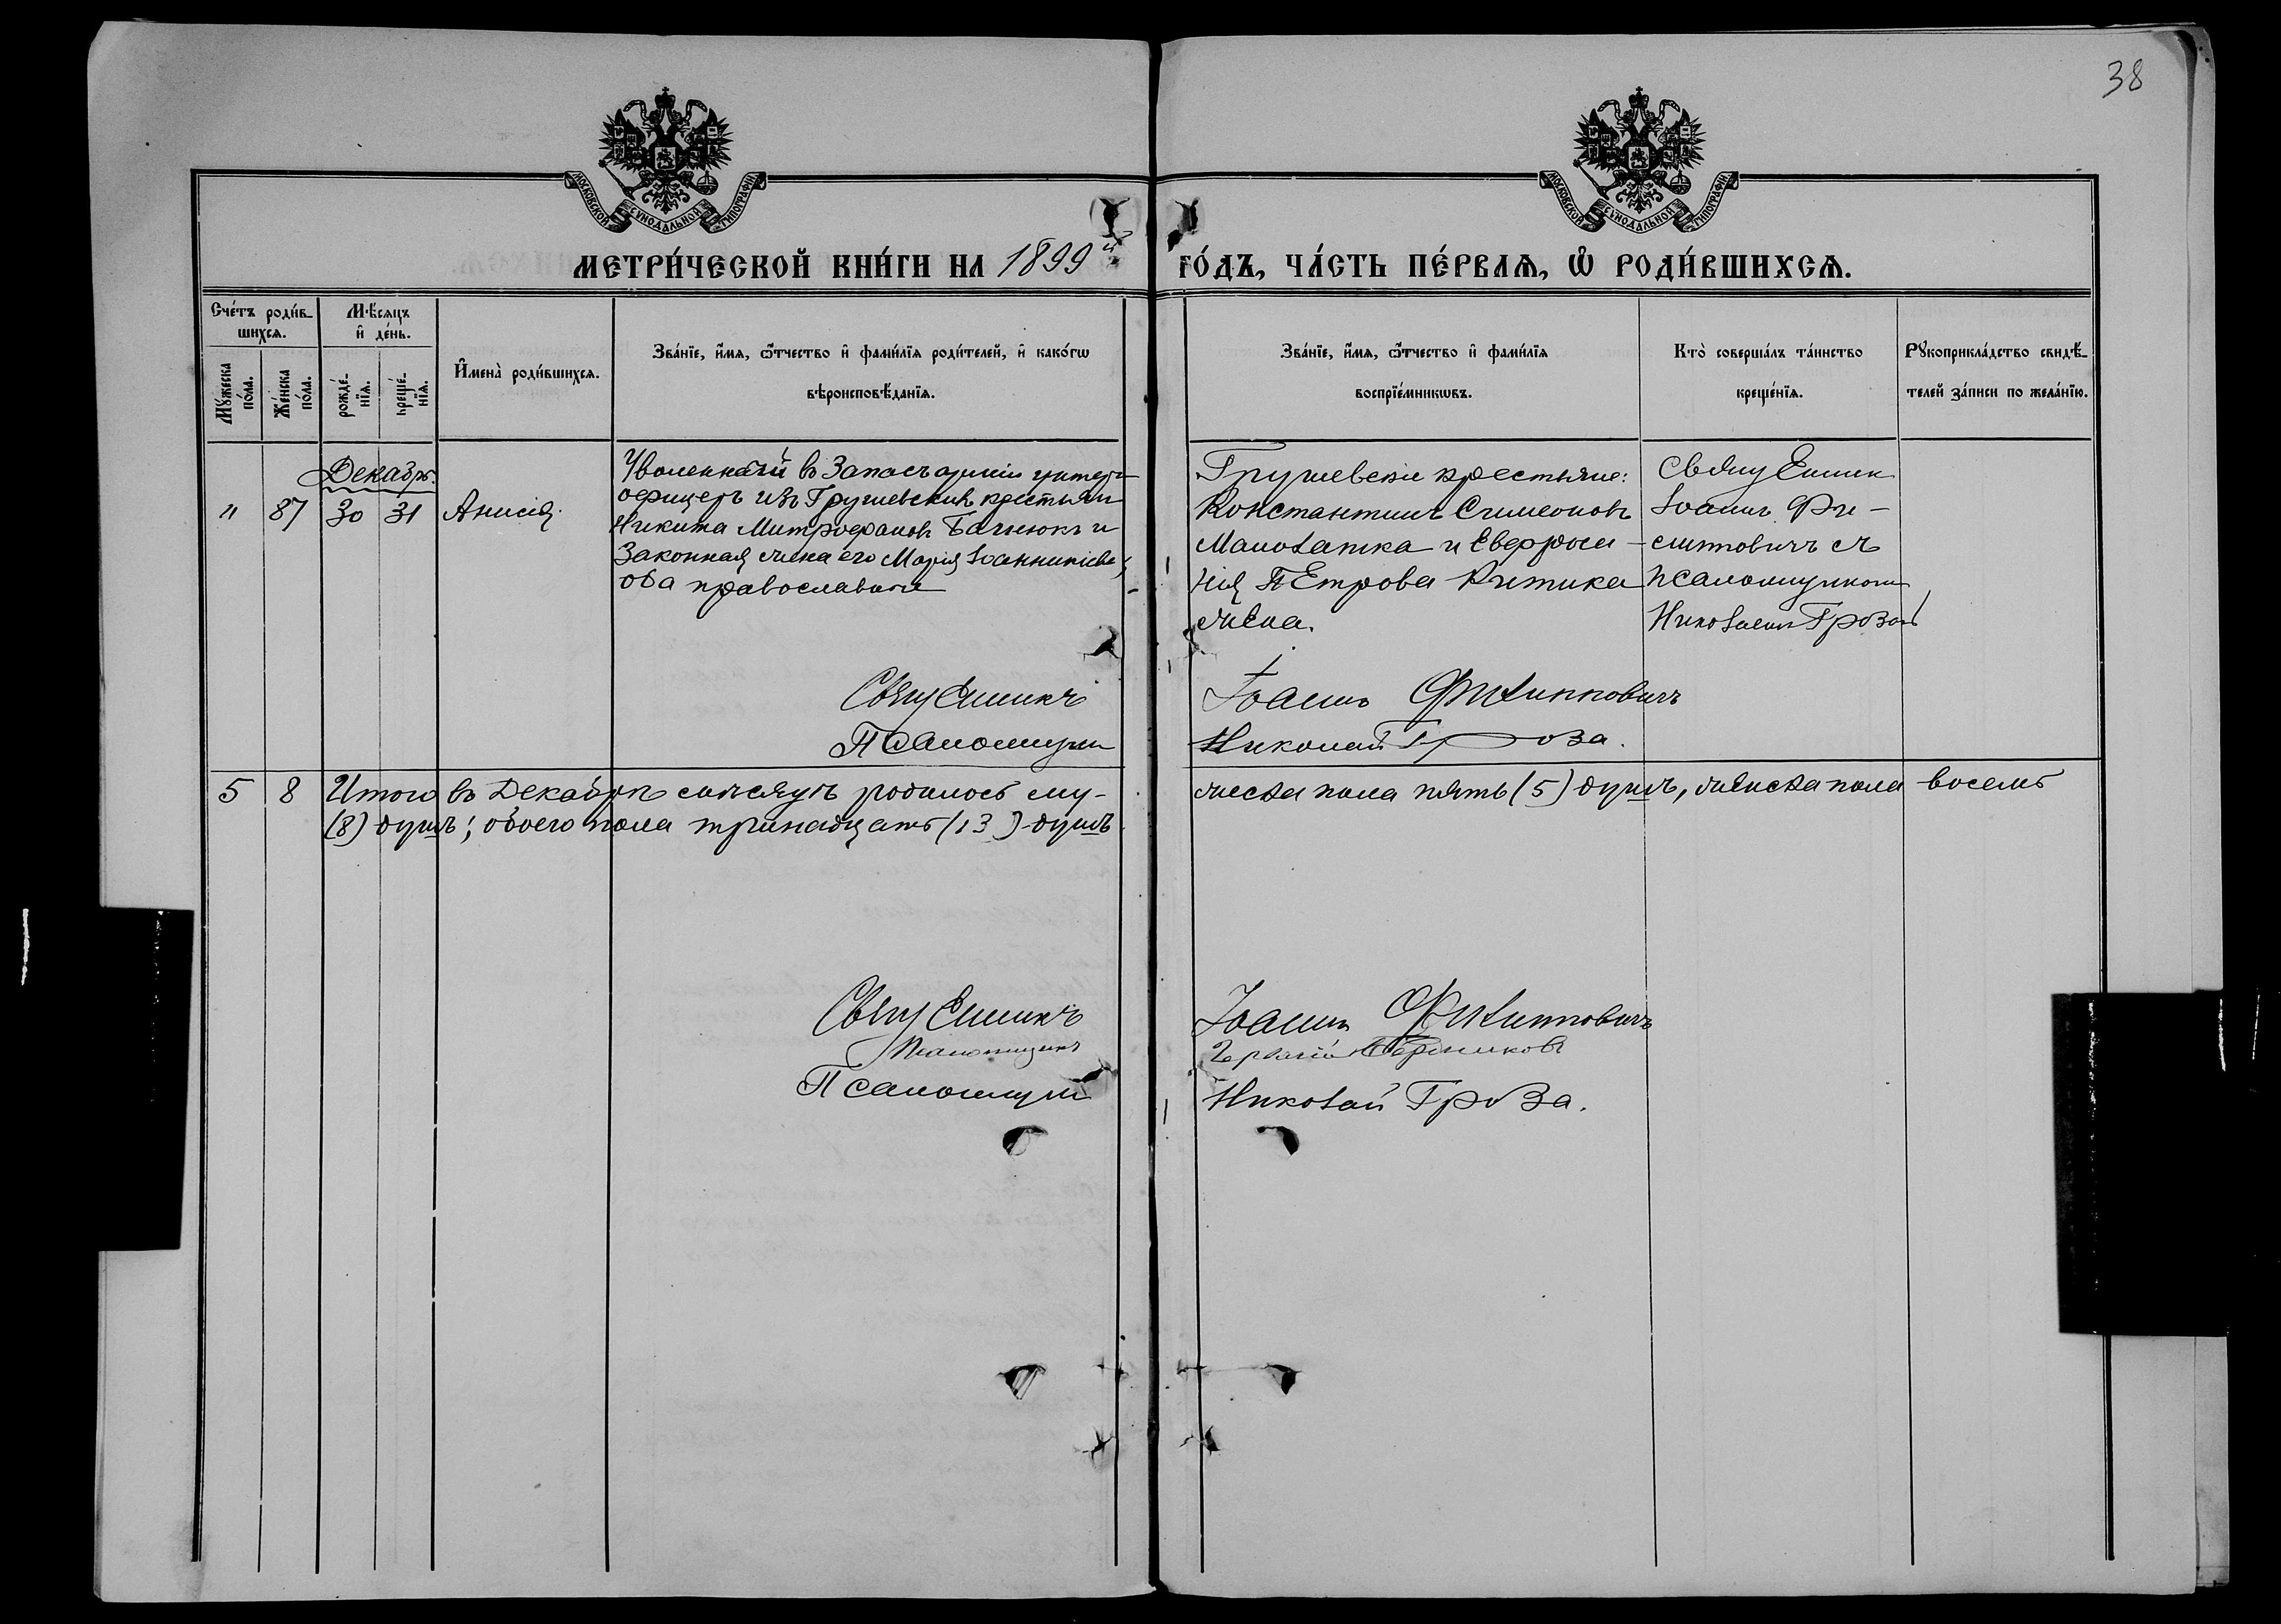 38
МОСКОВСКОЙ СѴНОДАЛЬНОЙ ТИПОГРАФІИ
МОСКОВСКОЙ СѴНОДАЛЬНОЙ ТИПОГРАФІИ
МЕТРИ́ЧЕСКОЙ КНИ́ГИ НА 1899й
ГО́ДЪ, ЧА́СТЬ ПЕ́РВАѦ, Ѡ҆ РОДИ́ВШИХСѦ.
Сче́тъ роди́в-
шихсѧ.
Мꙋжеска
по́ла.
Же́нска
по́ла.
Мѣ́сѧцъ
и҆ де́нь.
рожде́-
нїѧ.
креще́-
нїѧ.
И҆мена̀ роди́вшихсѧ.
Зва́нїе, и҆́мѧ, ѻ҆́тчество и҆ фами́лїѧ роди́телей, и҆ како́гѡ
вѣроисповѣ́данїѧ.
Зва́нїе, и҆́мѧ, ѻ҆́тчество и҆ фами́лїѧ
воспрїе́мникѡвъ.
Кто̀ соверша́лъ та́инство
креще́нїѧ.
Рꙋкоприкла́дство свидѣ́-
телей за́писи по жела́нїю.
Декабрь.
" 87 30 31 Анисія.
Уволенный въ Запасъ арміи унтеръ-
офицеръ изъ Грушевскихъ крестьянъ
Никита Митрофановъ и
Законная жена его Марія Іоанникіева;
оба православные
Грушевскіе крестьяне:
Константинъ Симеоновъ
Маполапка и Евфроси-
нія Петрова Китика
жена.
Священник
Іоаннъ Фи-
липповичъ съ
псаломщикомъ
Николаемъ Грозою
Священникъ Іоаннъ Филипповичъ
Псаломщикъ Николай Гроза.
5 8 Итого въ Декабрѣ мѣсяцѣ родилось му- жеска пола пять (5) душъ, женска пола восемь
(8) душъ; обоего пола тринадцать (13) душъ
Священникъ Іоаннъ Филипповичъ
Псаломщикъ
Псаломщикъ Николай Гроза.